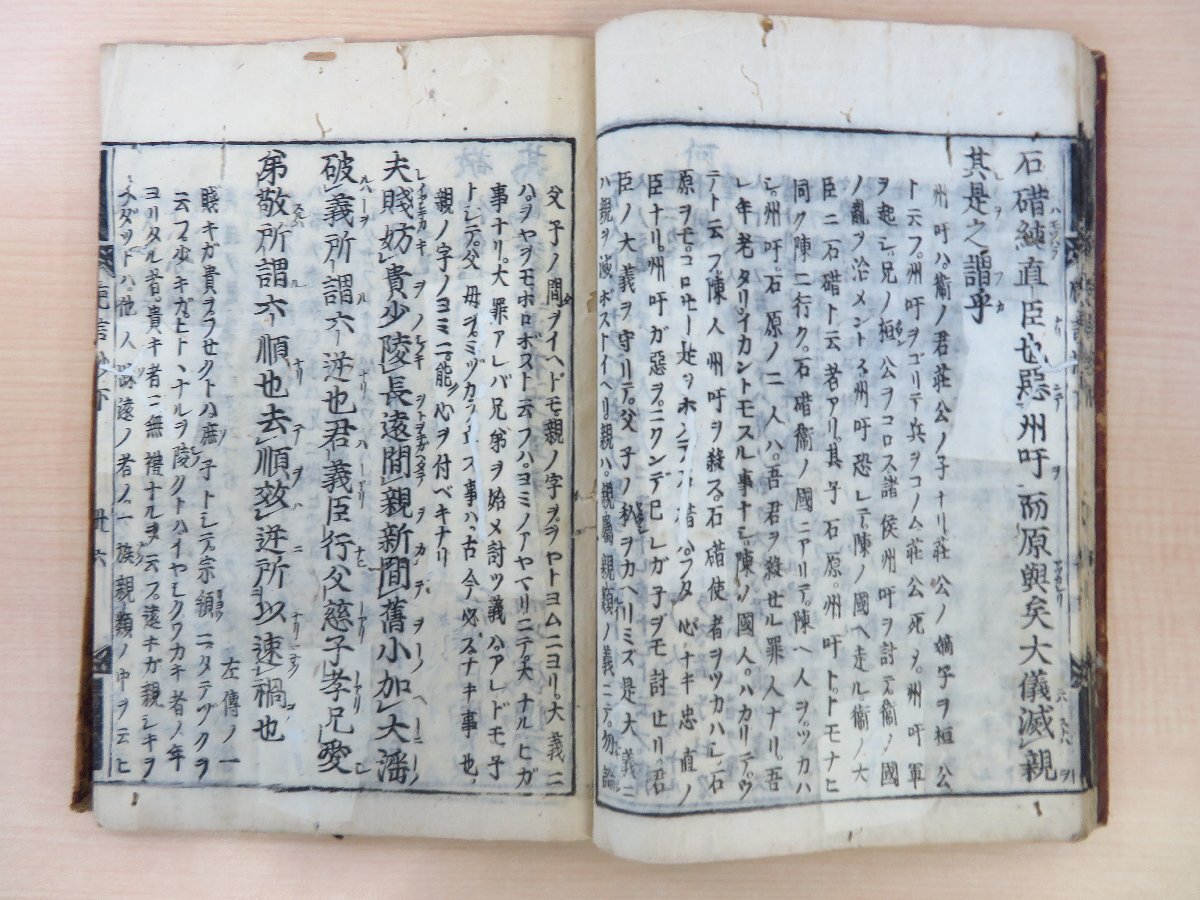 石碏純直臣也惡州吁而原與矣大儀滅親
其是之謂乎
州吁ハ衛ノ君荘公ノ子ナリ荘公ノ嫡字ヲ桓公
ト云フ州吁ヲゴリテ兵ヲコノム荘公死ヌ州吁軍
ヲ起シ兄ノ桓公ヲコロス諸侯州吁ヲ討テ衛ノ國
ノ亂ヲ治メントス州吁恐レテ陳ノ國ヘ走ル衛ノ大
臣ニ石碏ト云者アリ其子石原州吁トトモナヒ
同ク陳ニ行ク石碏衛ノ國ニアリテ陳ヘ人ヲツカハ
シ州吁石原ノ二人ハ吾君ヲ殺セル罪人ナリ吾
レ年老タリイカントモスル事ナシ陳ノ國人ハカリテウ
テト云フ陳人州吁ヲ殺ス石碏使者ヲツカハシ石
原ヲモコロセ
臣ナリ州吁ガ惡ヲニクンデ已レガ子ヲモ討セリ君
臣ノ大義ヲ守リテ父子ノ私ヲカヘリミズ是大義ニ
ハ親ヲ滅ボストイヘリ親ハ親屬親類ノ義ニテ勿論
父子ノ間ヲイヘドモ親ノ字ヲヲヤトヨムニヨリ大義ニ
ハヲヤヲモホロボスト云フハヨミノアヤマリニテ大ナルヒガ
事ナリ大罪アレバ兄弟ヲ始メ討ツ義ハアレドモ子
トシテ父母ヲミヅカラ 事ハ古今必ズナキ事也
親ノ字ノヨミニ能心ヲ付ベキナリ
夫賤妨貴少陵長遠間親新間舊小加大滛
破義所謂六逆也君義臣行父慈子孝兄愛
弟敬所謂六順也去順效逆所以速禍也
左傳ノ一
賤キガ貴ヲフセクトハ庶子トシテ宗領ニタテヅクヲ
云フ少キガヒトヽナルヲ陵クトハイヤシクワカキ者ノ年
ヨリタル者貴キ者ニ無禮ナルヲ云フ遠キガ親シキヲ
ヘダツトハ他人疎遠ノ者ノ一族親類ノ中ヲ云ヒ
丗六